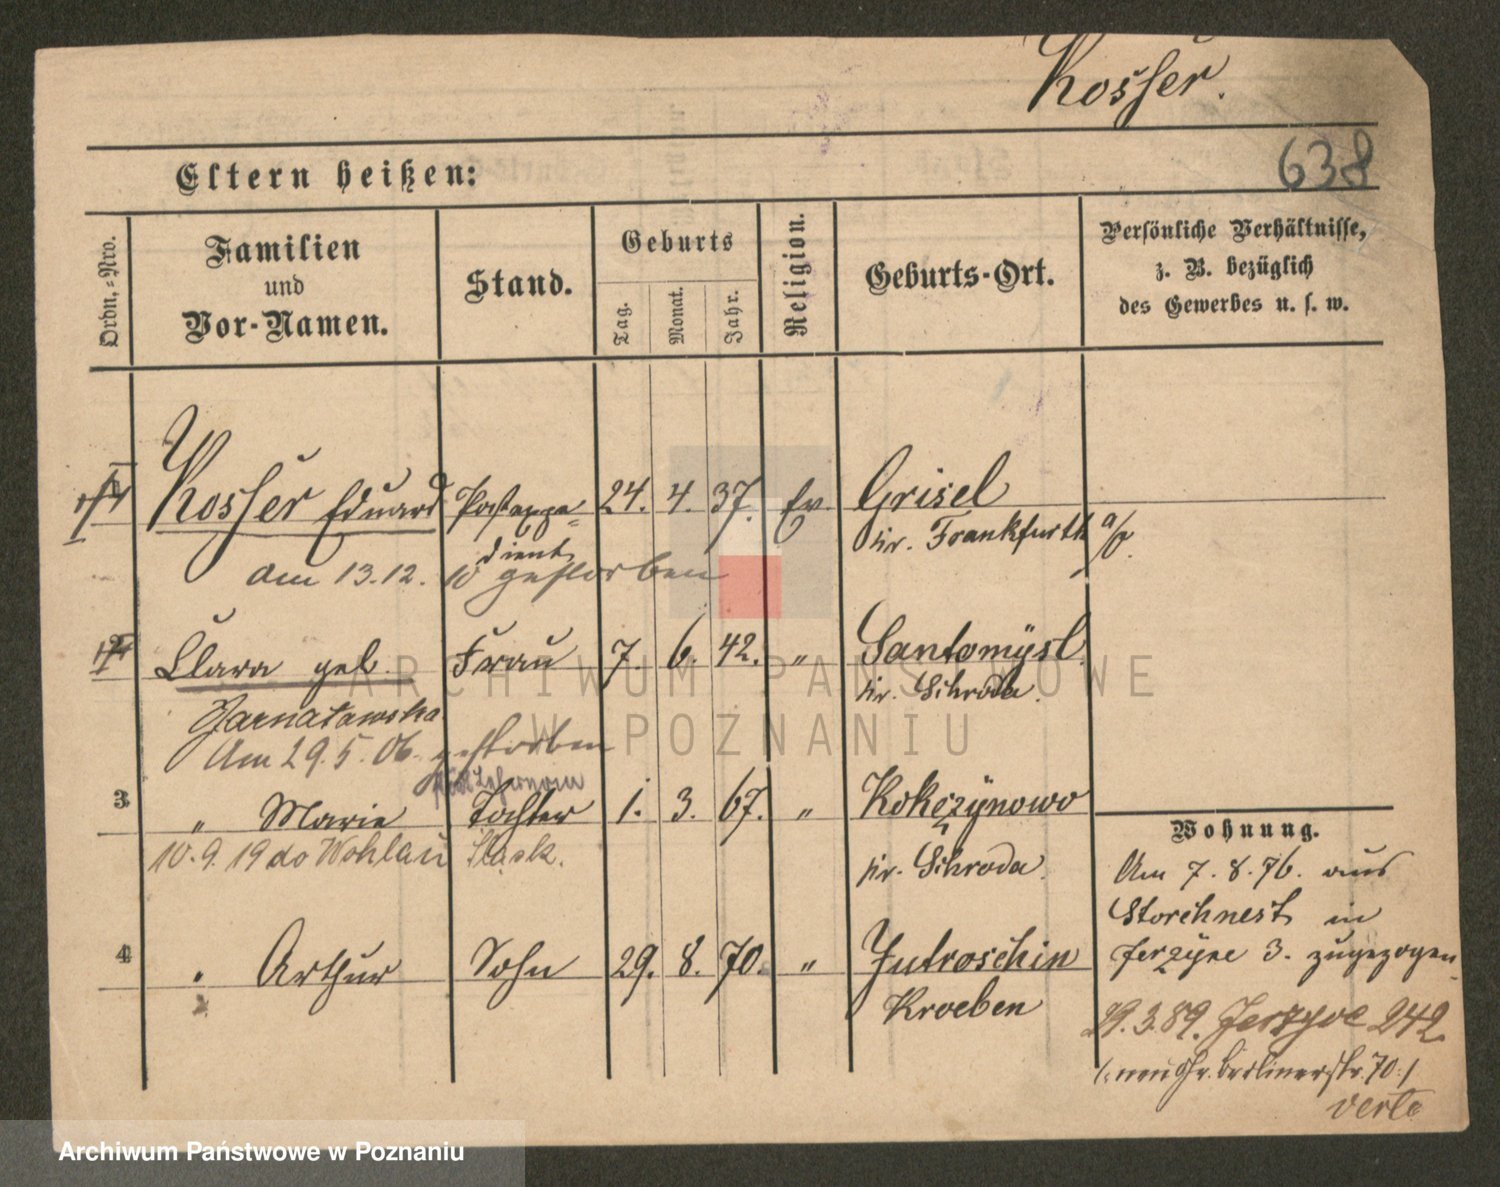 Kosser.
638
Eltern heißen:
Ordn.-Nro.
Familien
und
Vor-Namen.
Stand.
Geburts
Tag.
Monat.
Jahr.
Religion.
Geburts-Ort.
Persönliche Verhältnisse,
z. B. bezüglich
des Gewerbes u. s. w.
Kosser Eduard Postexpe= 24. 4. 37. Ev. Grisel
dient Kr. Frankfurth a/O.
am 13.12. 10 gestorben
Clara geb. Frau 7. 6. 42. " Santomysl
Kr. Schroda.
Am 29.5.06. gestorben
3 " Marie Tochter 1. 3. 67. " Kokczynowo
10.9.19 do Wohlau Śląsk. Kr. Schroda.
4 " Arthur Sohn 29. 8. 70. " Jutroschin
Kroeben
Wohnung.
Am 7.8.76. aus
Storchnest in
Jerzyce 3. zugezogen.
29.3.89. Jerzyce 242
Berlinerstr. 70
verte
ARCHIWUM PAŃSTWOWE
W POZNANIU
Archiwum Państwowe w Poznaniu